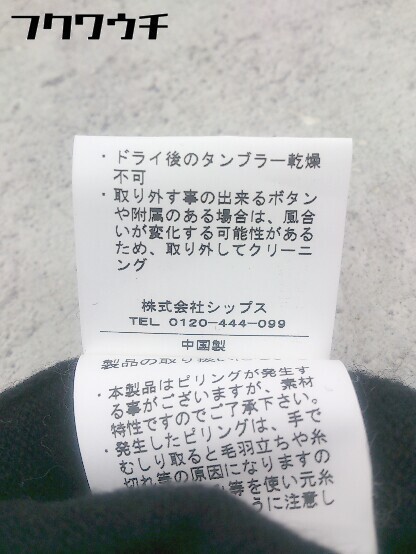 フクワウチ
・ドライ後のタンブラー乾燥
不可
・取り外す事の出来るボタン
や附属のある場合は、風合
いが変化する可能性がある
ため、取り外してクリーニ
ング
株式会社シップス
TEL 0120-444-099
中国製
製品の取り扱い
・本製品はピリングが発生す
る事がございますが、素材
特性ですのでご了承下さい。
・発生したピリングは、手で
むしり取ると毛羽立ちや糸
切れ等の原因になりますの
等を使い元糸
うに注意し